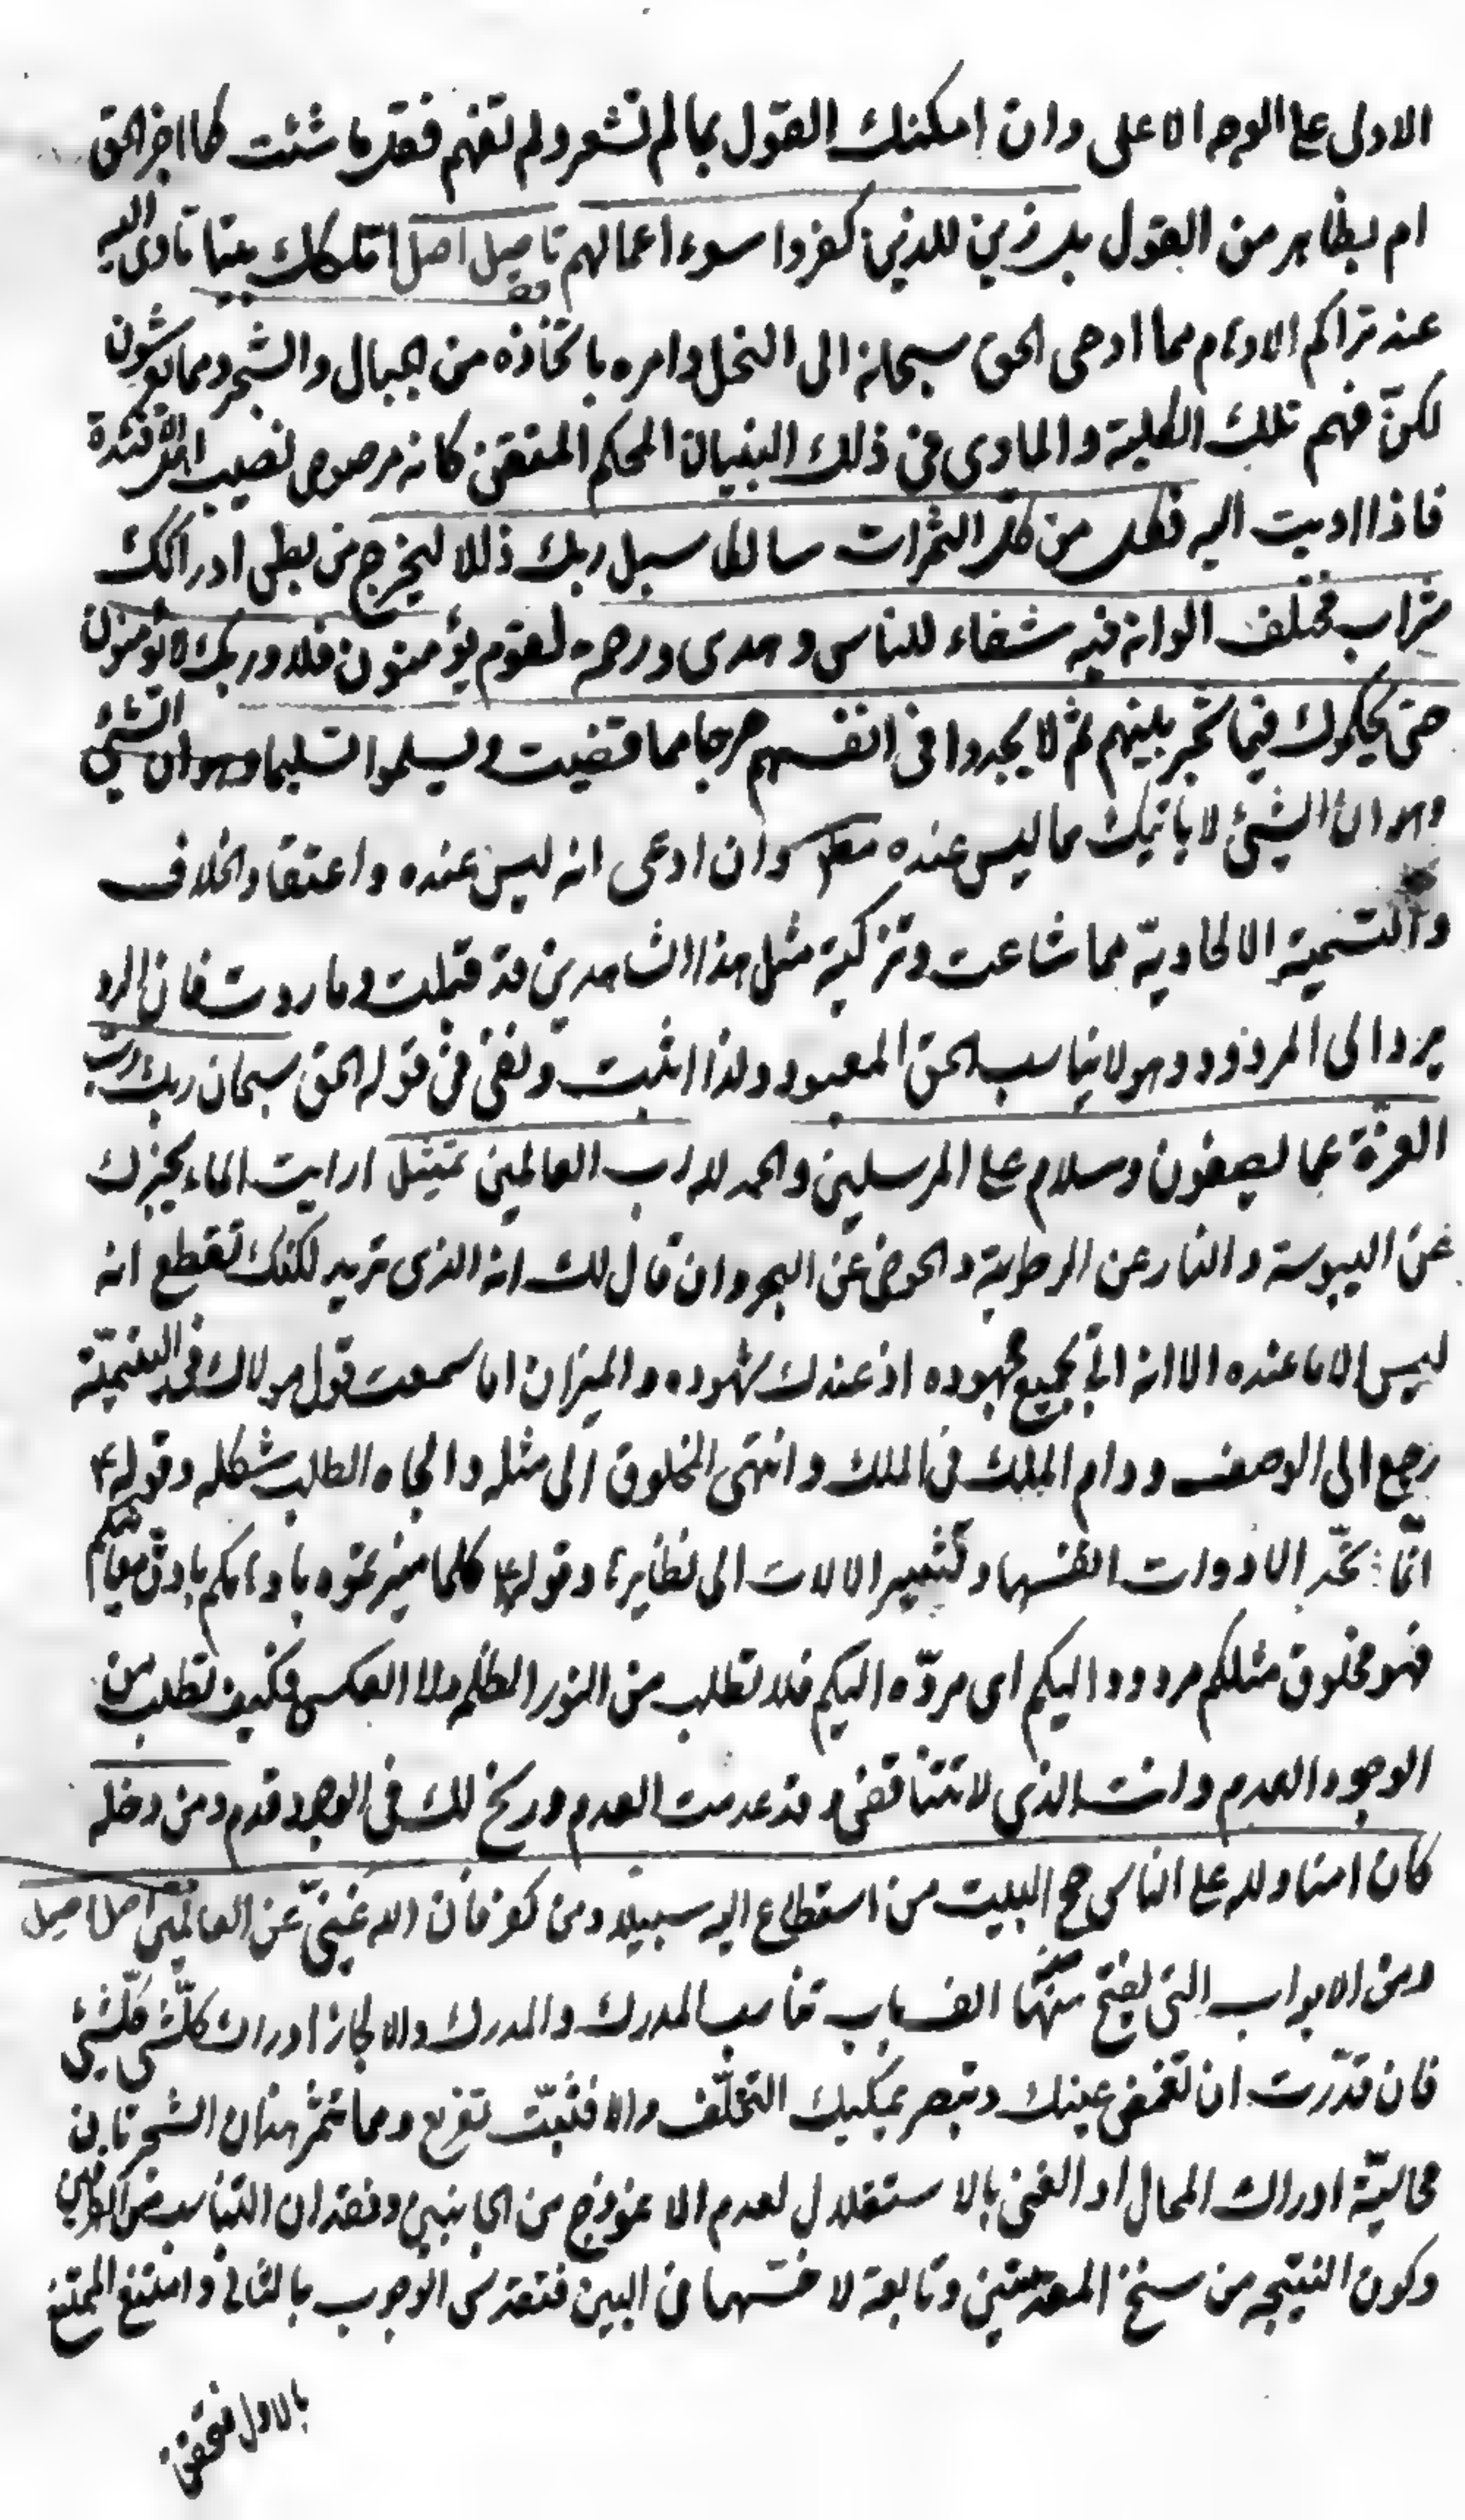 الاولى على الوجه الاعلى وان امكنك القول بما لم تشعر ولم تفهم فقل ما شئت كما اخبر الحق
ام بظاهر من القول بل زين للذين كفروا سوء اعمالهم تاصيل اصل املكك بيتا تاوى اليه
عند تراكم الاوهام مما اوحى الحق سبحانه الى النحل وامره باتخاذه من الجبال والشجر ومما يعرشون
لكن فهم تلك الكلية والماوى فى ذلك البنيان المحكم المتقن كانه مرصوص نصيب الافئدة
فاذا اويت اليه فكل من كل الثمرات سالكا سبل ربك ذللا ليخرج من بطن ادراكك
شراب مختلف الوانه فيه شفاء للناس وهدى ورحمة لقوم يؤمنون فلا وربك لا يؤمنون
حتى يحكموك فيما شجر بينهم ثم لا يجدوا فى انفسهم حرجا مما قضيت ويسلموا تسليما وهو ان الشيئ
وهو ان الشيئ لا ياتيك مما ليس عنده وان ادعى انه ليس عنده واعتقاد الخلاف
والتسمية الالحادية مما شاعت وتزكية مثل هذا الشاهدين قد قبلت وما ردت فان الرد
يرد الى المردود وهو لا يناسب الحق المعبود ولذا اثبت ونفى فى قوله الحق سبحان ربك رب
العزة عما يصفون وسلام على المرسلين والحمد لله رب العالمين تمثيل ارايت الماء يخبرك
عن اليبوسة والنار عن الرطوبة والحوض عن البحر وان قال لك انه الذى تريد لكنك تقطع انه
ليس الا ما عنده الا انه اتى بجميع مجهوده اذ عندك شهوده والميزان اما سمعت قول مولاك فى اليتيمية
رجع الى الوصف ودام الملك فى الملك وانتهى المخلوق الى مثله والجاه الطلب شكله وقوله ع
انما تحد الادوات انفسها وتشير الالات الى نظايرها وقوله ع كلما ميزتموه باوهامكم بادق معانيكم
فهو مخلوق مثلكم مردود اليكم اى مرده اليكم فلا تطلب من النور الظلم ولا العكس فكيف تطلب من
الوجود العدم وانت الذى لا تتناقض وقد عدمت العدم ورسخ لك فى الوجود قدم ومن دخله
كان امنا ولله على الناس حج البيت من استطاع اليه سبيلا ومن كفر فان الله غنى عن العالمين اصل اصيل
ومن الابواب التى يفتح منها الف باب تناسب المدرك والمدرك والا لجاز ادراك كل شى كل شيئ
فان قدرت ان تغمض عينك وتبصر بمكيك التخلف والا فتثبت تفريع ومما تثمر هذان الشجرتان
محالية ادراك المحال او الغنى بالاستقلال لعدم الانموذج من الجانبين وفقدان التناسب من الطرفين
وكون النتيجه من سنخ المقدمتين وتابعة لاخسهما فى البين فتقدس الوجوب بالثانى وامتنع الممتنع
بالاول فتحقق